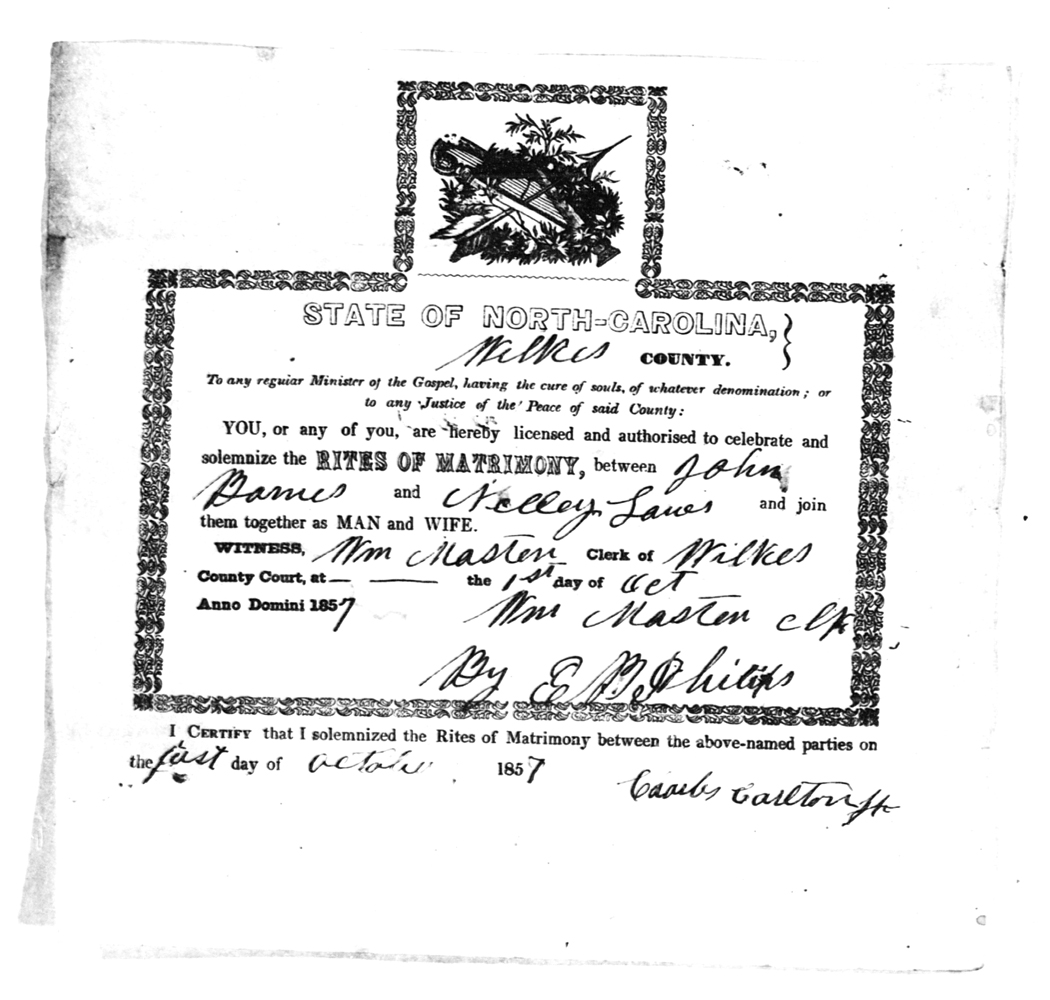 STATE OF NORTH-CAROLINA, }
Wilkes COUNTY.
To any regular Minister of the Gospel, having the cure of souls, of whatever denomination; or
to any Justice of the Peace of said County:
YOU, or any of you, are hereby licensed and authorised to celebrate and
solemnize the RITES OF MATRIMONY, between John
Barnes and Nelley and join
them together as MAN and WIFE.
WITNESS, Wm Masten Clerk of Wilkes
County Court, at — — the 1st day of Oct
Anno Domini 1857
Wm Masten Clk
By E B Philips
I CERTIFY that I solemnized the Rites of Matrimony between the above-named parties on
the first day of October 1857
Carlton